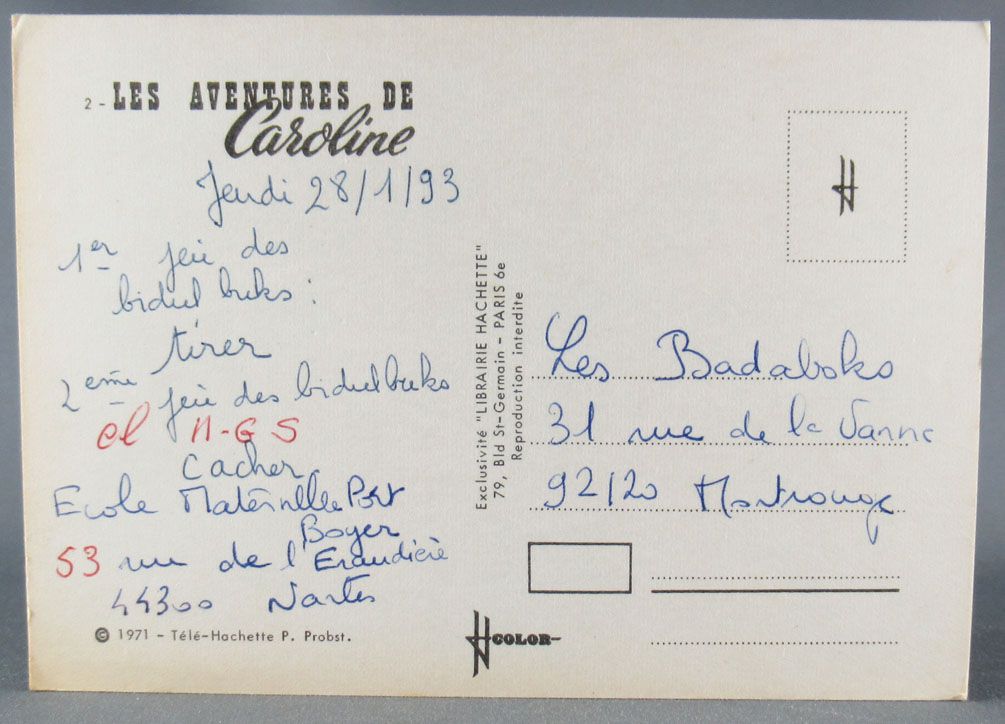 2 - LES AVENTURES DE
Caroline
Jeudi 28/1/93
1er jeu des
bidul buks :
tirer
2eme jeu des bidulbuks
cl M-G S
cacher
Ecole Maternelle Port
Boyer
53 rue de l'Eraudière
44300 Nantes
© 1971 - Télé-Hachette P. Probst.
Exclusivité "LIBRAIRIE HACHETTE"
79, Bld St-Germain - PARIS 6e
Reproduction interdite
H COLOR
H
Les Badaboks
31 rue de la Vanne
92120 Montrouge